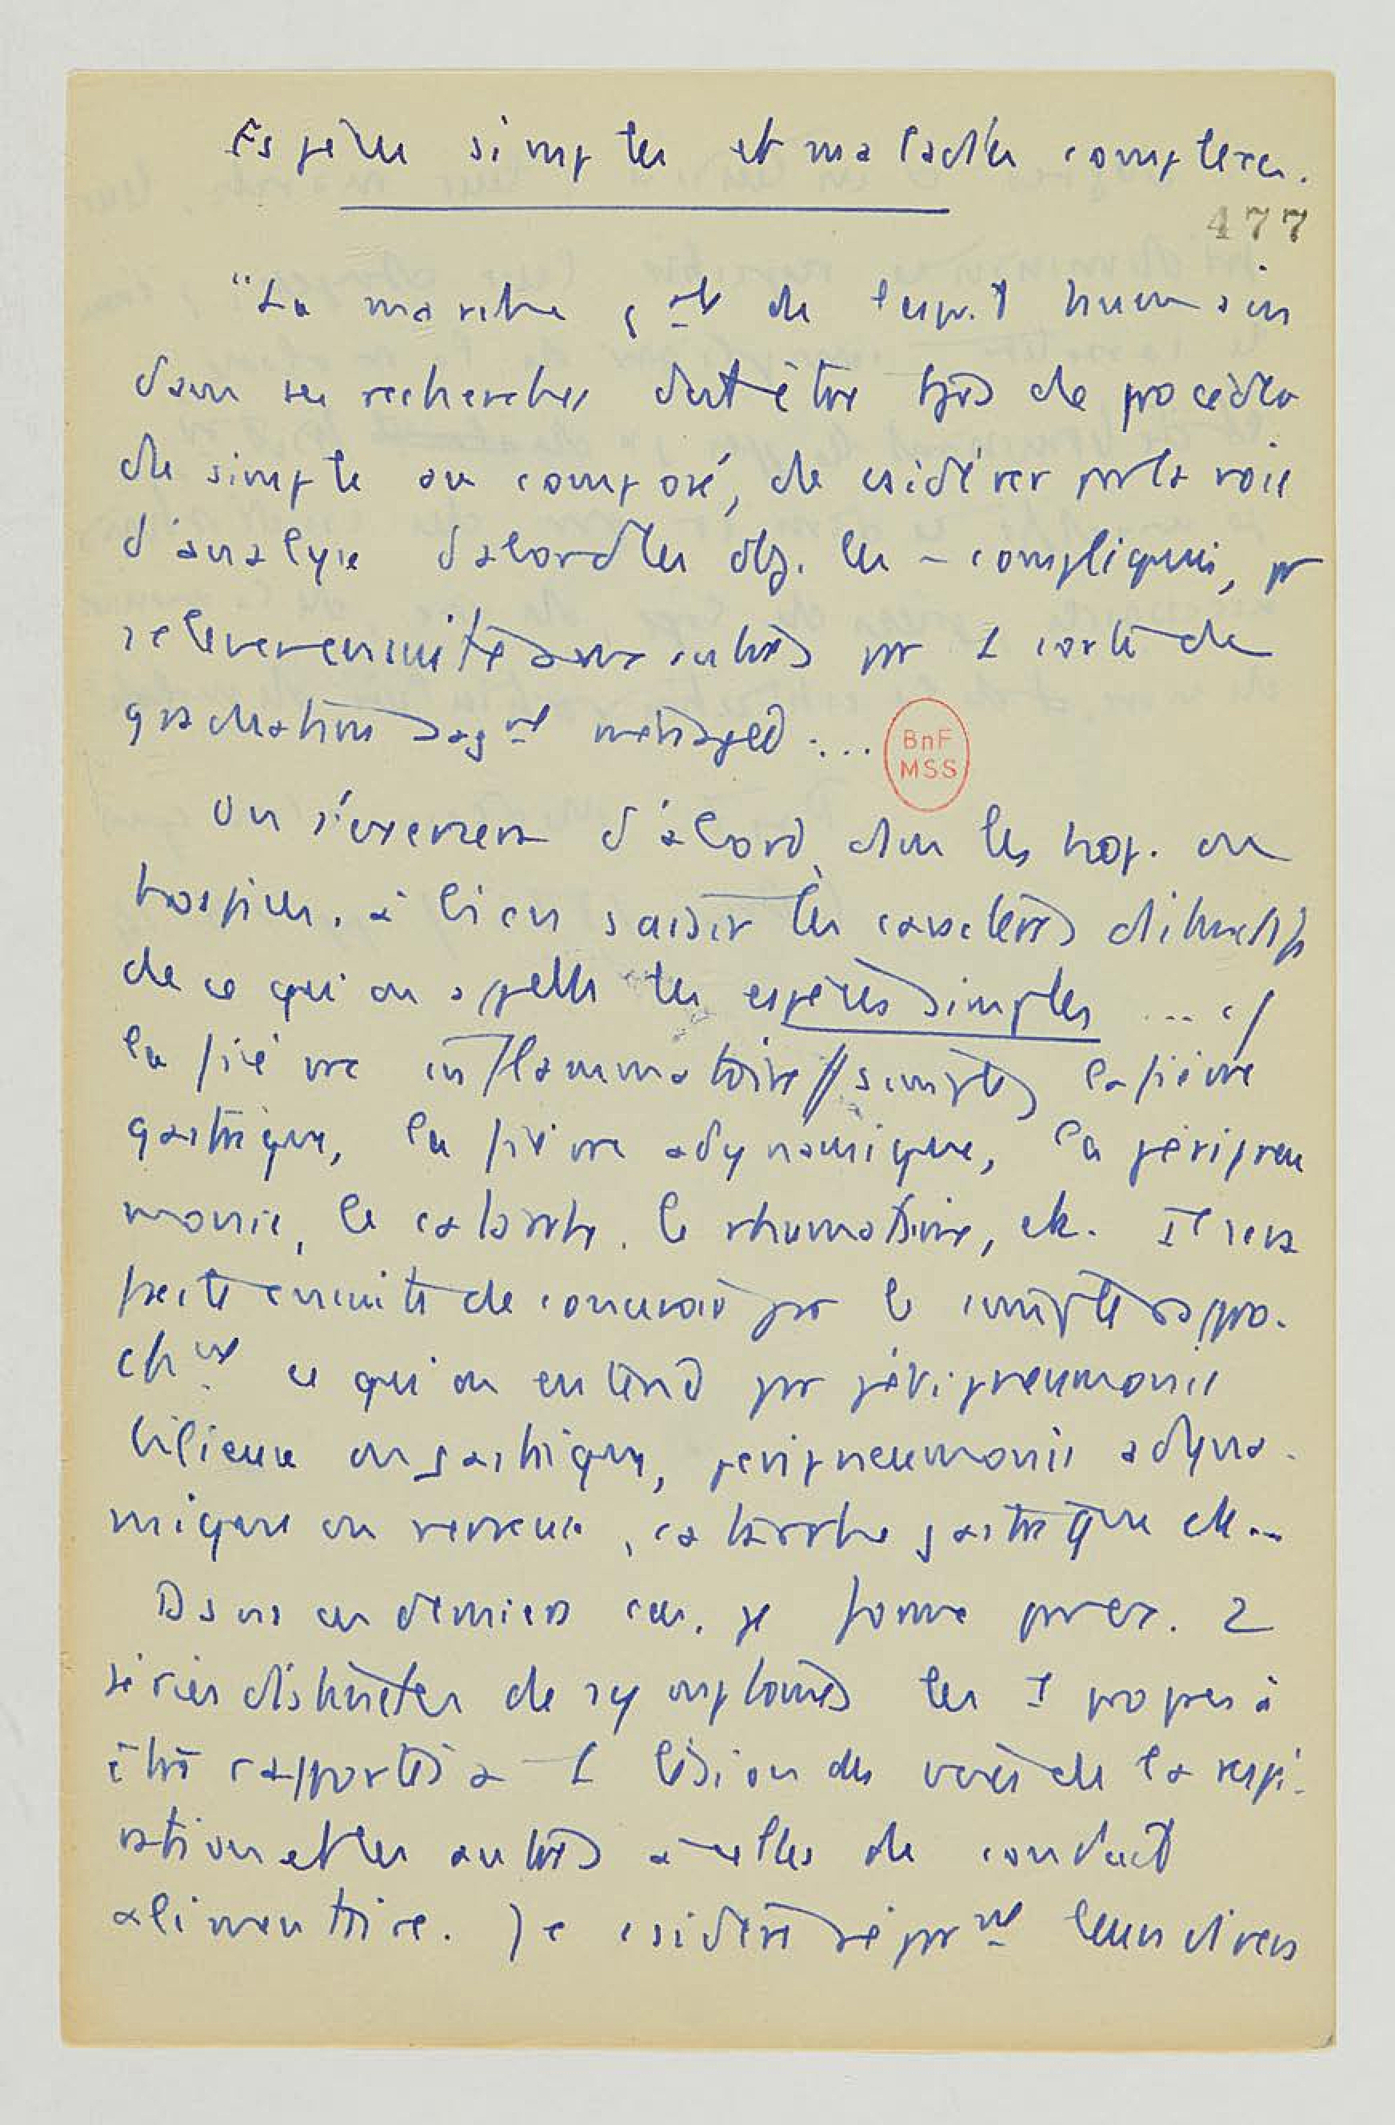 Espèces simples et maladies complexes.
477
"La marche gale de l'esprit humain
dans ses recherches doit être tjrs de procéder
du simple au composé, de csidérer par la voie
d'analyse d'abord les obj. les - compliqués, pr
s'élever ensuite aux autres par 1 sorte de
gradation sagmt ménagée....
BnF
MSS
On s'exercera d'abord, dans les hop. ou
hospices, à bien saisir les caractères distinctifs
de ce qu'on appelle les espèces simples ... cf
la fièvre inflammatoire simple, la fièvre
gastrique, la fièvre adynamique, la péripneu
monie, le catarrhe, le rhumatisme, etc. Il sera
facile ensuite de concevoir par le simple rappro-
chmt ce qu'on entend par péripneumonie
bilieuse ou gastrique, péripneumonie adyna-
mique ou nerveuse, catarrhe gastrique etc...
Dans ces derniers cas, je forme par ex. 2
séries distinctes de symptômes les 1 propres à
être rapportés à 1 lésion des voies de la respi-
ration et les autres à celles du conduit
alimentaire. Je csidère séparmt leurs divers